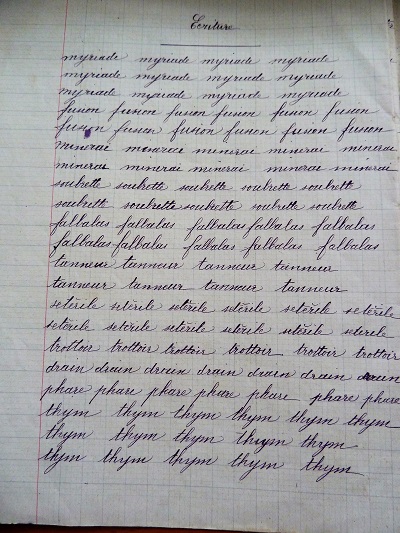 Ecriture
myriade myriade myriade myriade
myriade myriade myriade myriade
myriade myriade myriade myriade
fusion fusion fusion fusion fusion fusion
fusion fusion fusion fusion fusion fusion
minerai minerai minerai minerai minerai
minerai minerai minerai minerai minerai
soubrette soubrette soubrette soubrette soubrette
soubrette soubrette soubrette soubrette soubrette
falbalas falbalas falbalas falbalas falbalas
falbalas falbalas falbalas falbalas falbalas
tanneur tanneur tanneur tanneur
tanneur tanneur tanneur tanneur
stérile stérile stérile stérile stérile stérile
stérile stérile stérile stérile stérile stérile
trottoir trottoir trottoir trottoir trottoir trottoir
drain drain drain drain drain drain drain
phare phare phare phare phare phare phare
thym thym thym thym thym thym
thym thym thym thym thym
thym thym thym thym thym